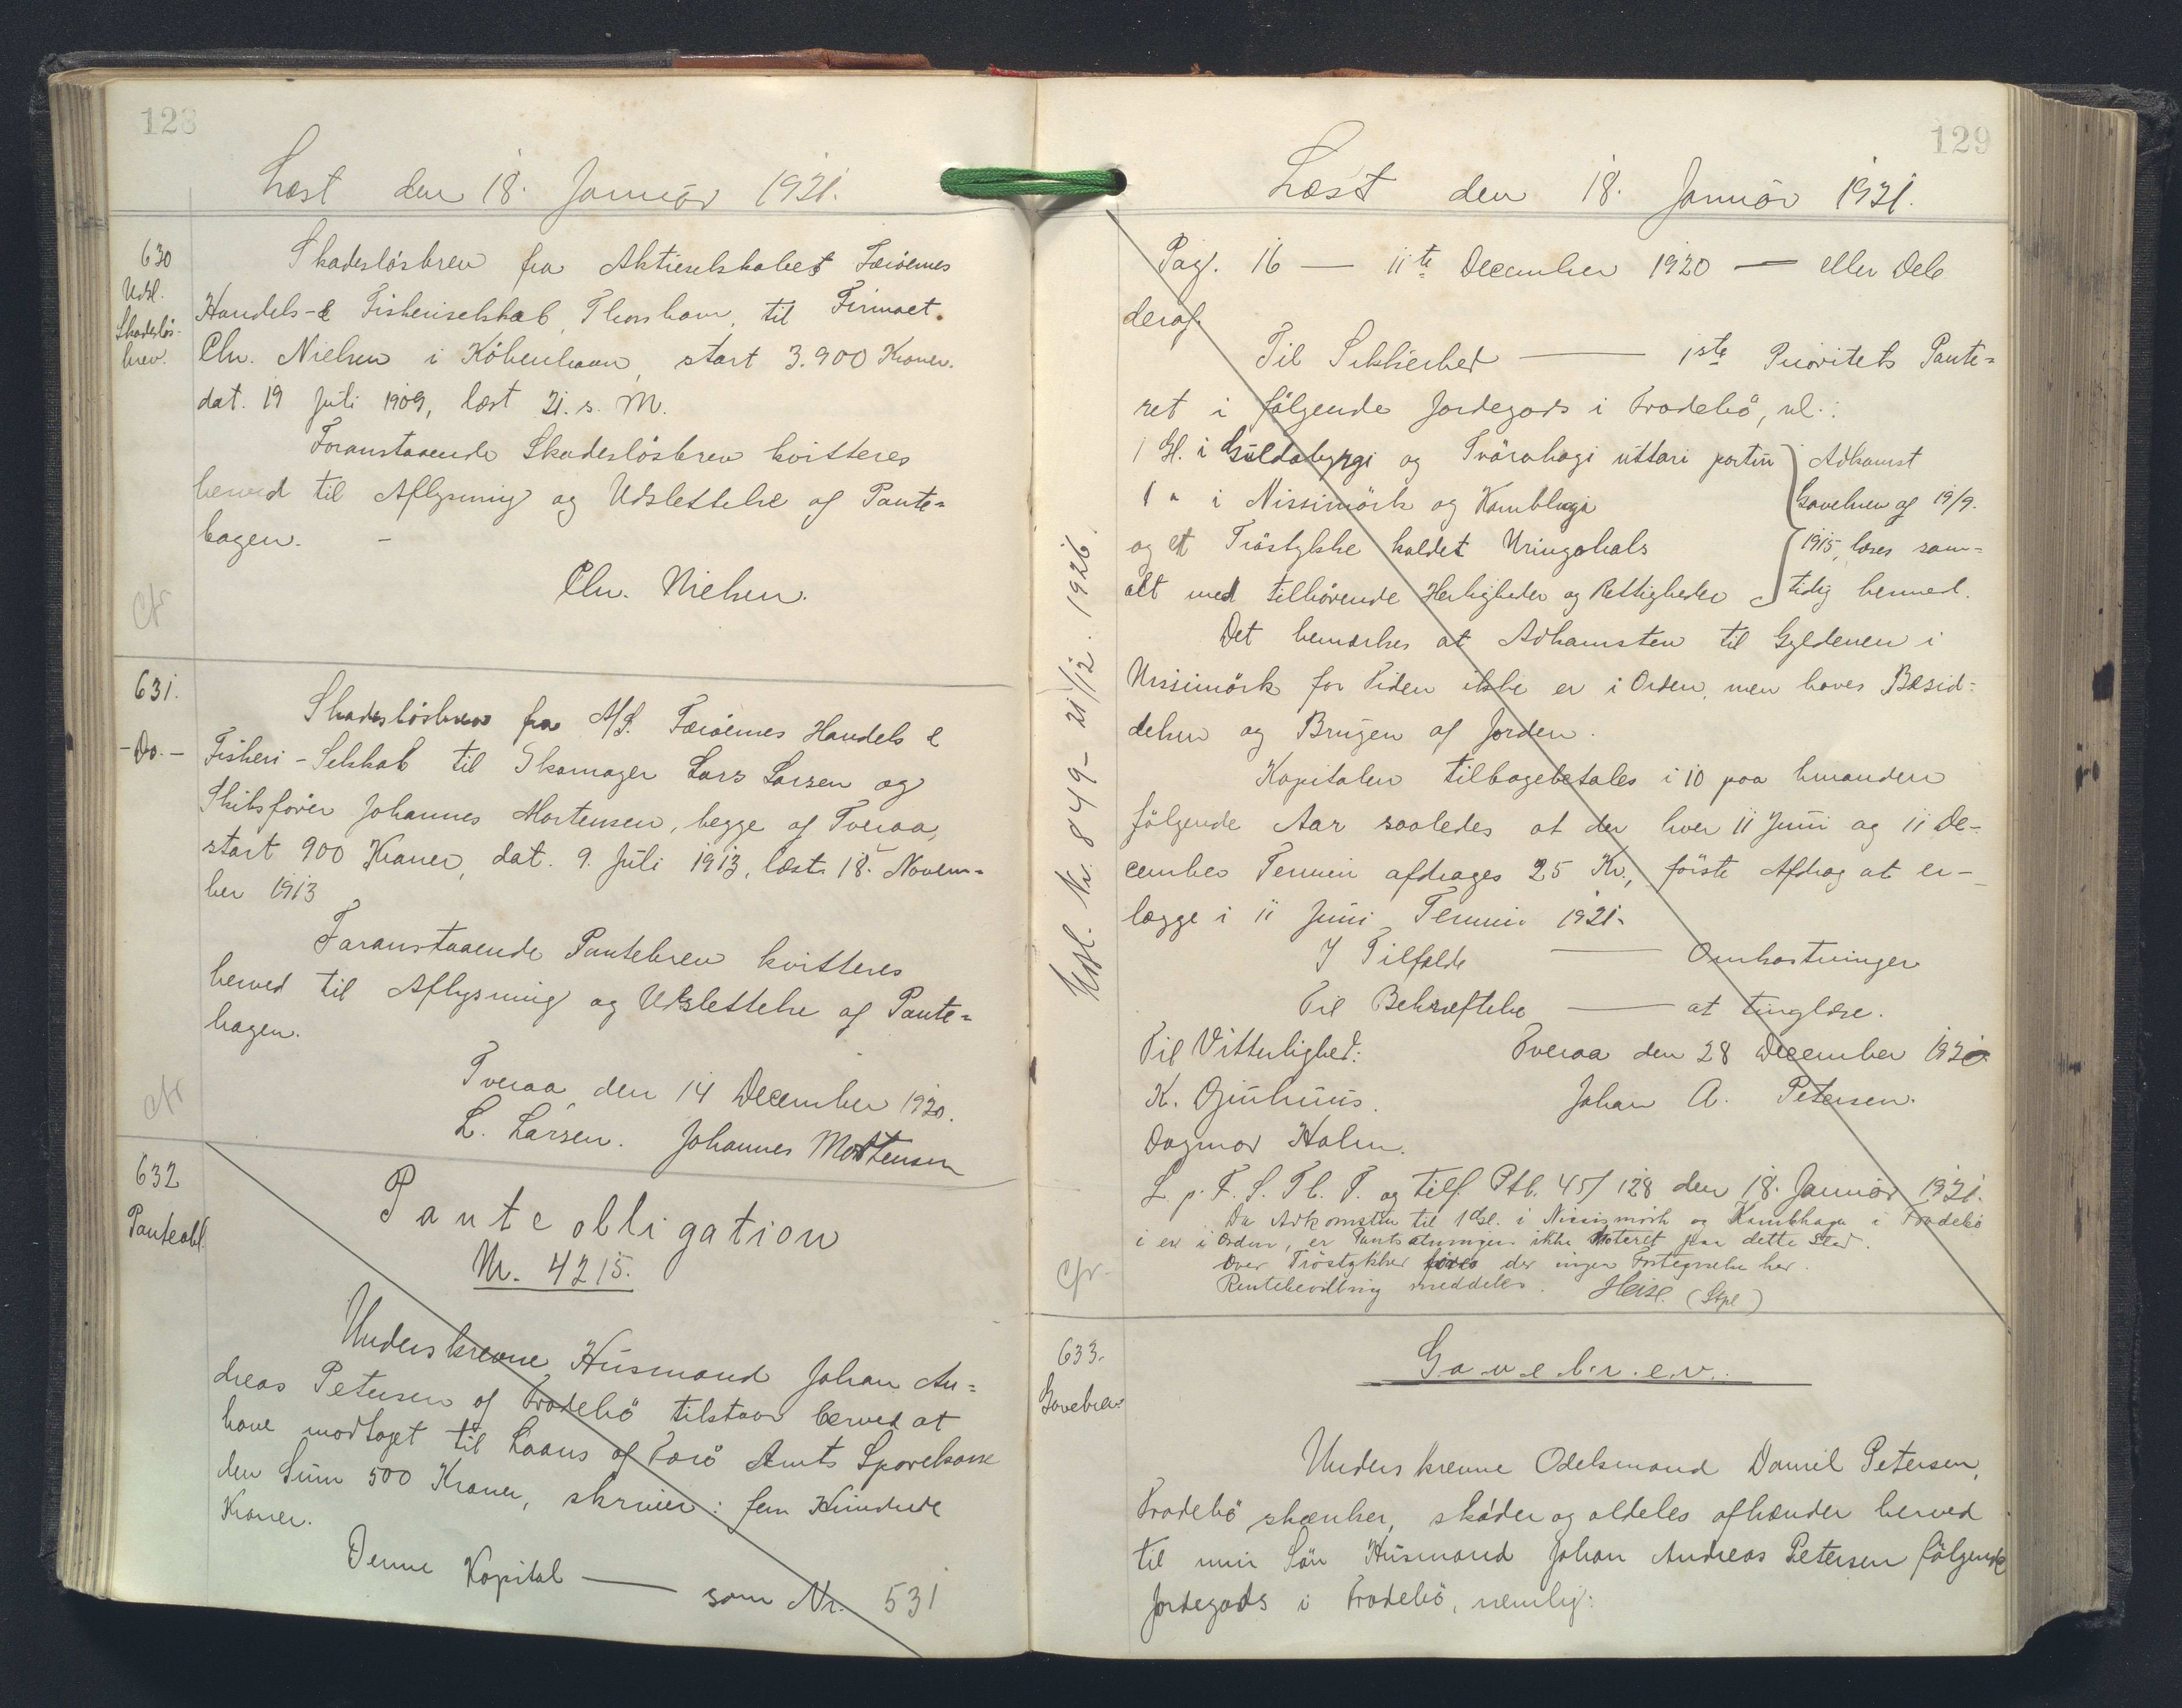 128
Læst den 18. Januar 1921.
630
Udsl.
Skadesløs-
brev.
Skadesløsbrev fra Aktieselskabet Færøernes
Handels- & Fiskeriselskab, Thorshavn, til Firmaet
Chr. Nielsen i København, stort 3.900 Kroner.
dat. 19 Juli 1909, læst 21. s. M.
Foranstaaende Skadesløsbrev kvitteres
herved til Aflysning og Udslettelse af Pante=
bogen. -
Chr. Nielsen.
cfr
631.
- Do. -
Skadesløsbrev fra A/S. Færøernes Handels &
Fiskeri-Selskab til Skomager Lars Larsen og
Skibsfører Johannes Mortensen, begge af Tveraa,
stort 900 Kroner, dat. 9. Juli 1913, læst 18. Novem=
ber 1913
Foranstaaende Pantebrev kvitteres
herved til Aflysning og Udslettelse af Pante=
bogen.
Tveraa den 14 December 1920.
L. Larsen. Johannes Mortensen
cfr
632
Panteobl.
Panteobligation
Nr. 4215.
Underskrevne Husmand Johan An=
dreas Petersen af Frodebø tilstaar herved at
have modtaget til Laans af Færø Amts Sparekasse
den Sum 500 Kroner, skriver: fem Hundrede
Kroner.
Denne Kapital — som Nr. 531
129
Læst den 18. Januar 1921.
Pag. 16 — 11te December 1920 — eller Dele
deraf.
Til Sikkerhed — 1ste Prioritets Pante=
ret i følgende Jordegods i Frodebø, nl.:
1 Gl. i Guldabyrgi og Tvärahagi uttari partin
1 " i Nissimörk og Kambhagi
og et Tröstykke kaldet Uringahals
alt med tilhørende Herligheder og Rettigheder
Adkomst
Gavebrev af 19/9.
1915, læses sam=
tidig hermed.
Det bemærkes at Adkomsten til Gyldenen i
Nissimörk for Tiden ikke er i Orden, men haves Besid=
delsen og Brugen af Jorden.
Kapitalen tilbagebetales i 10 paa hinanden
følgende Aar saaledes at der hver 11 Juni og 11 De-
cember Termin afdrages 25 Kr., første Afdrag at er-
lægge i 11 Juni Termin 1921.
I Tilfælde — Omkostninger
Til Bekræftelse — at tinglæse.
Til Vitterlighed: Tveraa den 28 December 1920
K. Gjuhuus. Johan A. Petersen.
Dagmar Holm.
L. p. F. S. Tb. P. og tilf. Ptb. 45/128 den 18. Januar 1921.
Da Adkomsten til 1 Gl. i Nissimörk og Kambhaga i Frodebø
i er i Orden, er Pantsætningen ikke Noteret paa dette Sted.
Over Tröstykker føres der ingen Fortegnelse her.
Rentebevilling meddeles. Heise. (Stpl)
cfr.
Udsl. Nr. 849 - 21/12. 1926.
633.
Gavebrev
Gavebrev.
Underskrevne Odelsmand Daniel Petersen,
Frodebø skænker, skøder og aldeles afhænder herved
til min Søn Husmand Johan Andreas Petersen følgende
Jordegods i Frodebø, nemlig: